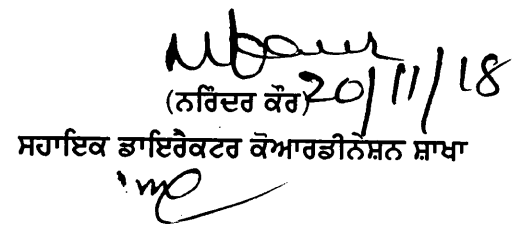 (ਨਰਿੰਦਰ ਕੌਰ) 20/11/18
ਸਹਾਇਕ ਡਾਇਰੈਕਟਰ ਕੋਆਰਡੀਨੇਸ਼ਨ ਸ਼ਾਖਾ